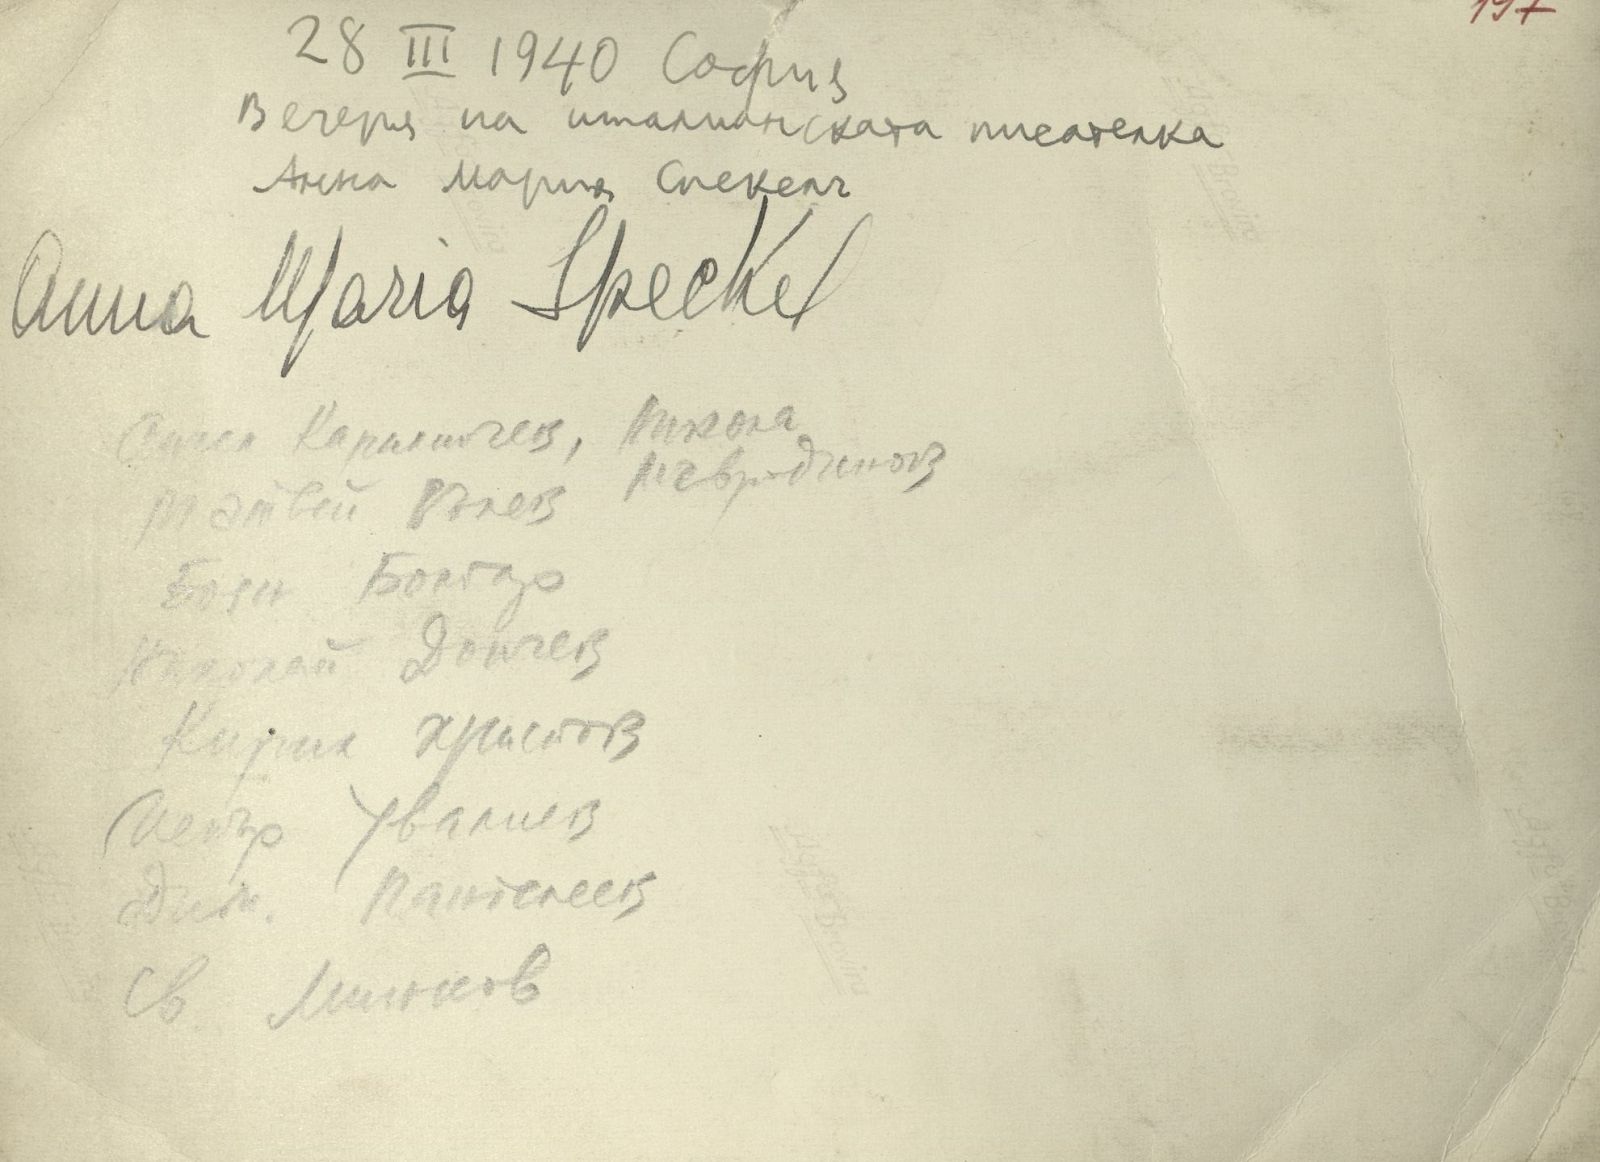 197
28 III 1940 София
Вечеря на италианската писателка
Анна Мария Спекелъ
Anna Maria Speckel
Ангел Каралийчев, Никола
Мавродинов
Матвей Вълев
Боян Болгар
Николай Дончев
Кирил Христов
Петър Увалиев
Дим. Пантелеев
Св. Минков